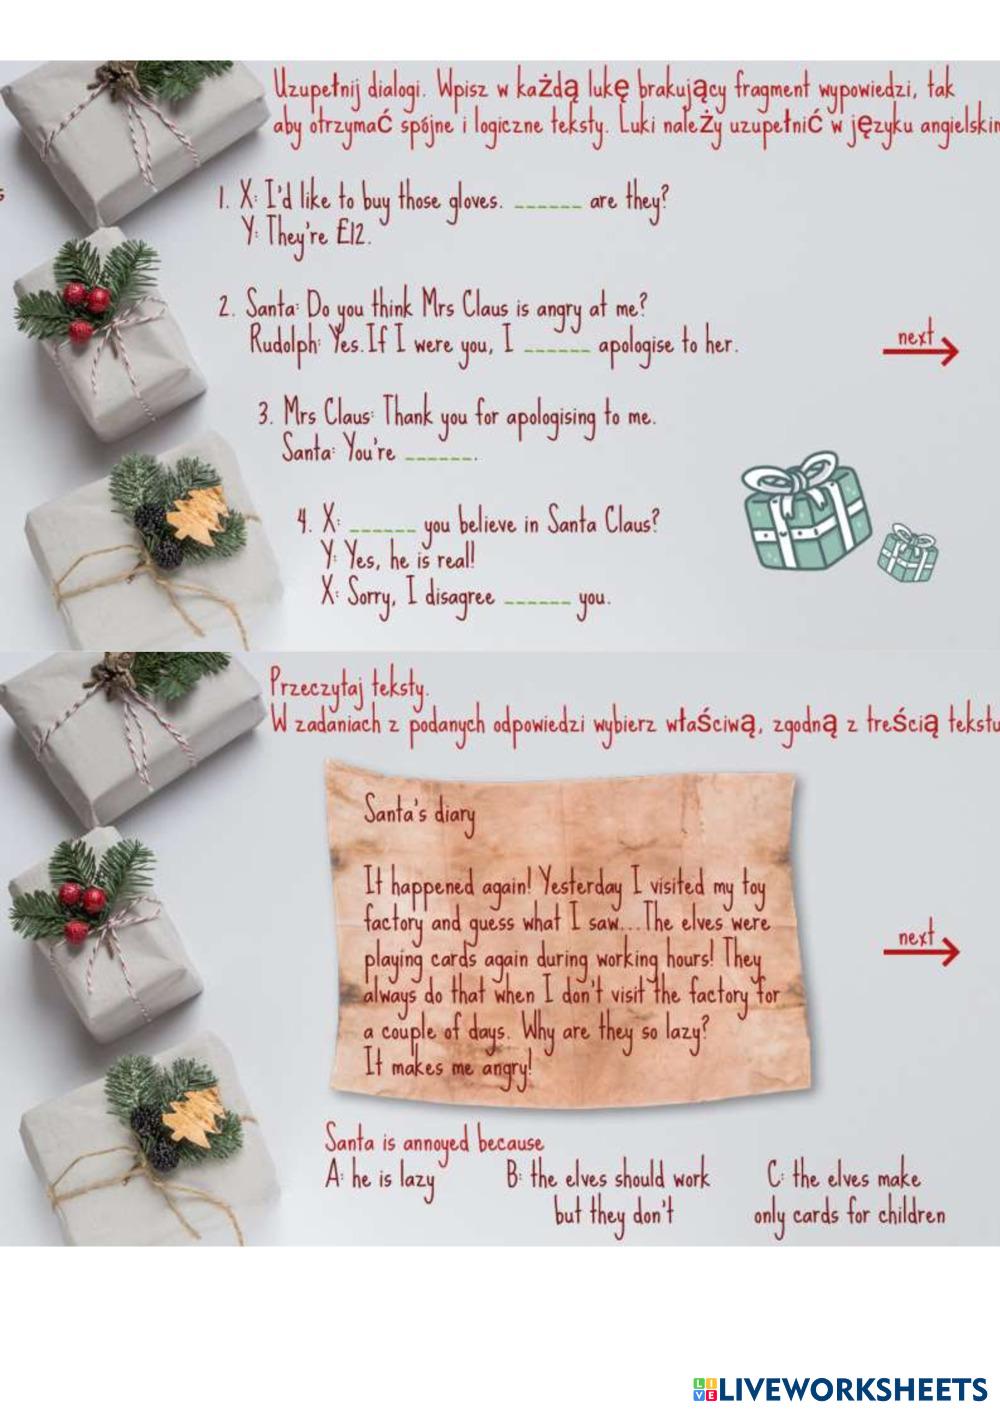 Uzupełnij dialogi. Wpisz w każdą lukę brakujący fragment wypowiedzi, tak
aby otrzymać spójne i logiczne teksty. Luki należy uzupełnić w języku angielskim
1. X: I'd like to buy those gloves. ______ are they?
Y: They're £12.
2. Santa: Do you think Mrs Claus is angry at me?
Rudolph: Yes. If I were you, I ______ apologise to her.
next
3. Mrs Claus: Thank you for apologising to me.
Santa: You're ______.
4. X: ______ you believe in Santa Claus?
Y: Yes, he is real!
X: Sorry, I disagree ______ you.
Przeczytaj teksty.
W zadaniach z podanych odpowiedzi wybierz właściwą, zgodną z treścią tekstu
Santa's diary
It happened again! Yesterday I visited my toy
factory and guess what I saw... The elves were
playing cards again during working hours! They
always do that when I don't visit the factory for
a couple of days. Why are they so lazy?
It makes me angry!
next
Santa is annoyed because
A: he is lazy B: the elves should work C: the elves make
but they don't only cards for children
LIVEWORKSHEETS